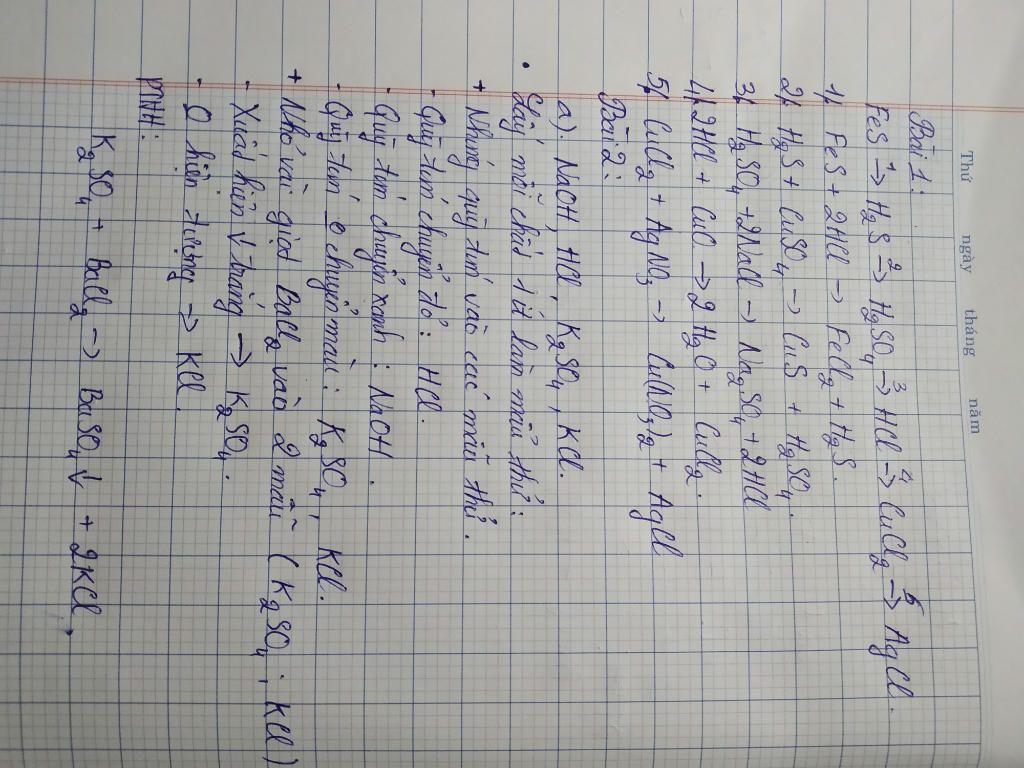 Thứ ngày tháng năm
Bài 1:
FeS 1→ H2S 2→ H2SO4 3→ HCl 4→ CuCl2 5→ AgCl.
1, FeS + 2HCl → FeCl2 + H2S.
2, H2S + CuSO4 → CuS + H2SO4.
3, H2SO4 + 2NaCl → Na2SO4 + 2HCl
4, 2HCl + CuO → 2H2O + CuCl2.
5, CuCl2 + AgNO3 → Cu(NO3)2 + AgCl
Bài 2:
a) NaOH, HCl, K2SO4, KCl.
• Lấy mỗi chất 1 ít làm mẫu thử:
+ Nhúng quỳ tím vào các mẫu thử.
- Quỳ tím chuyển đỏ: HCl.
- Quỳ tím chuyển xanh: NaOH.
- Quỳ tím 0 chuyển màu: K2SO4, KCl.
+ Nhỏ vài giọt BaCl2 vào 2 mẫu (K2SO4, KCl)
- Xuất hiện ↓ trắng → K2SO4.
- 0 hiện tượng → KCl.
PTHH:
K2SO4 + BaCl2 → BaSO4↓ + 2KCl.